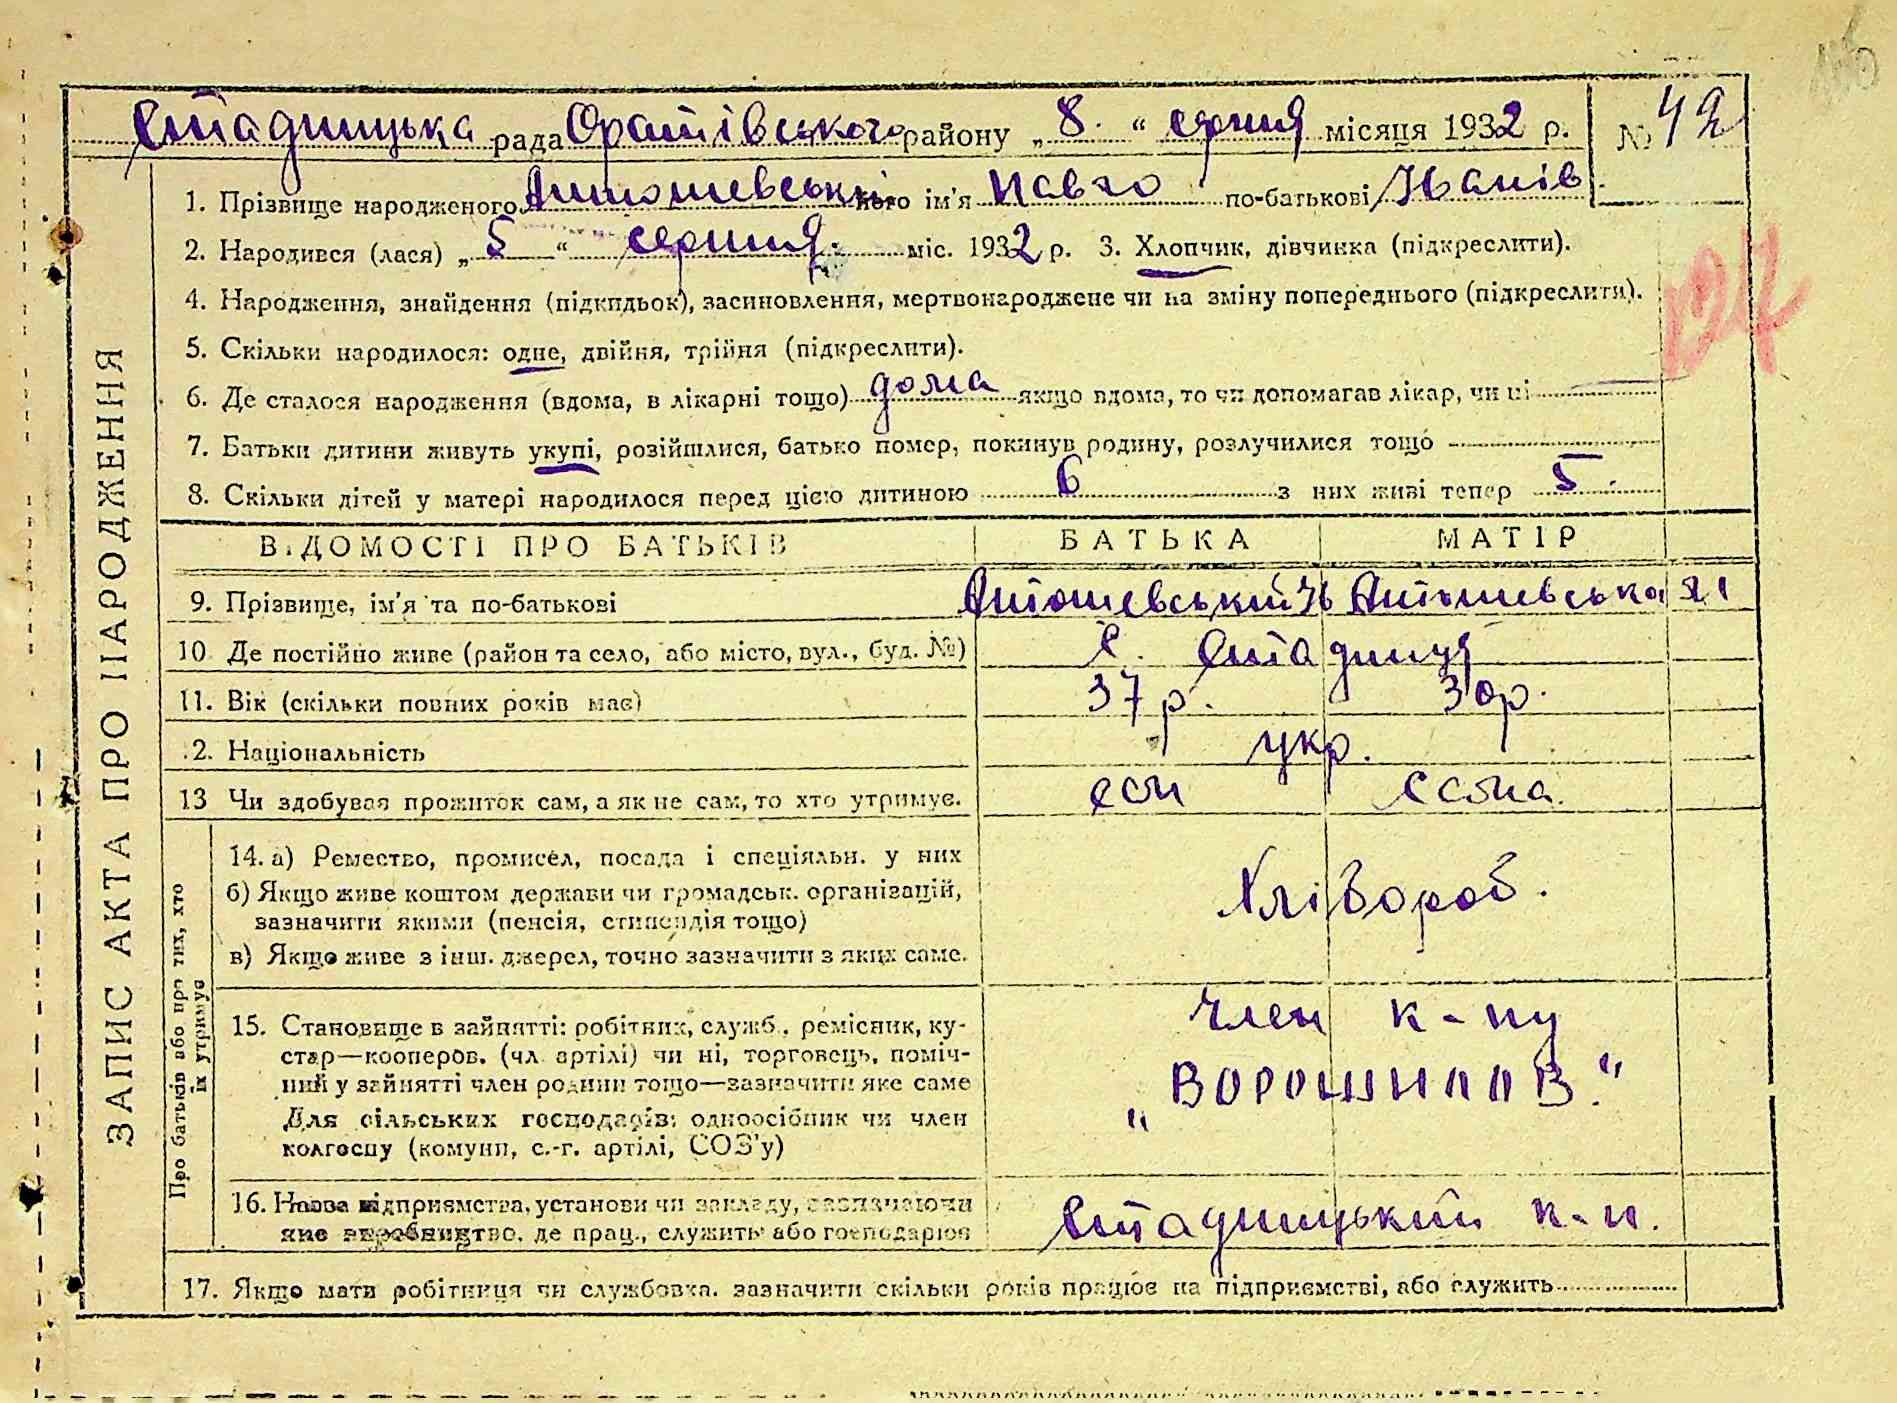 Стадницька рада Оратівського району „ 8. “ серпня місяця 1932 р. № 42
1. Прізвище народженого Антошевський його ім'я Павло по-батькові Іванів
2. Народився (лася) „ 5 “ серпня міс. 1932 р. 3. Хлопчик, дівчинка (підкреслити).
4. Народження, знайдення (підкидьок), засиновлення, мертвонароджене чи на зміну попереднього (підкреслити).
5. Скільки народилося: одне, двійня, трійня (підкреслити).
6. Де сталося народження (вдома, в лікарні тощо) дома якщо вдома, то чи допомагав лікар, чи ні —
7. Батьки дитини живуть укупі, розійшлися, батько помер, покинув родину, розлучилися тощо
8. Скільки дітей у матері народилося перед цією дитиною 6 з них живі тепер 5
ЗАПИС АКТА ПРО НАРОДЖЕННЯ
ВІДОМОСТІ ПРО БАТЬКІВ БАТЬКА МАТІР
9. Прізвище, ім'я та по-батькові Антошевський Ів Антошевська
10 Де постійно живе (район та село, або місто, вул., буд. №) С. Стадниця
11. Вік (скільки повних років має) 37 р. 30 р.
12. Національність укр.
13 Чи здобував прожиток сам, а як не сам, то хто утримує. сам сама
Про батьків або про тих, хто їх утримує
14. а) Ремество, промисел, посада і спеціяльн. у них
б) Якщо живе коштом держави чи громадськ. організацій,
зазначити якими (пенсія, стипендія тощо)
в) Якщо живе з інш. джерел, точно зазначити з яких саме.
Хліbороб.
15. Становище в зайнятті: робітник, служб., ремісник, ку-
стар—кооперов. (чл. артілі) чи ні, торговець, поміч-
ний у зайнятті член родини тощо—зазначити яке саме
Для сільських господарів: одноосібник чи член
колгоспу (комуни, с.-г. артілі, СОЗ'у)
член к-пу
„ВОРОШИЛОВ.“
16. Назва підприємства, установи чи закладу, зазначаючи
яке виробництво, де прац., служить або господарює
Стадницький к-п.
17. Якщо мати робітниця чи службовка, зазначити скільки років працює на підприємстві, або служить
127